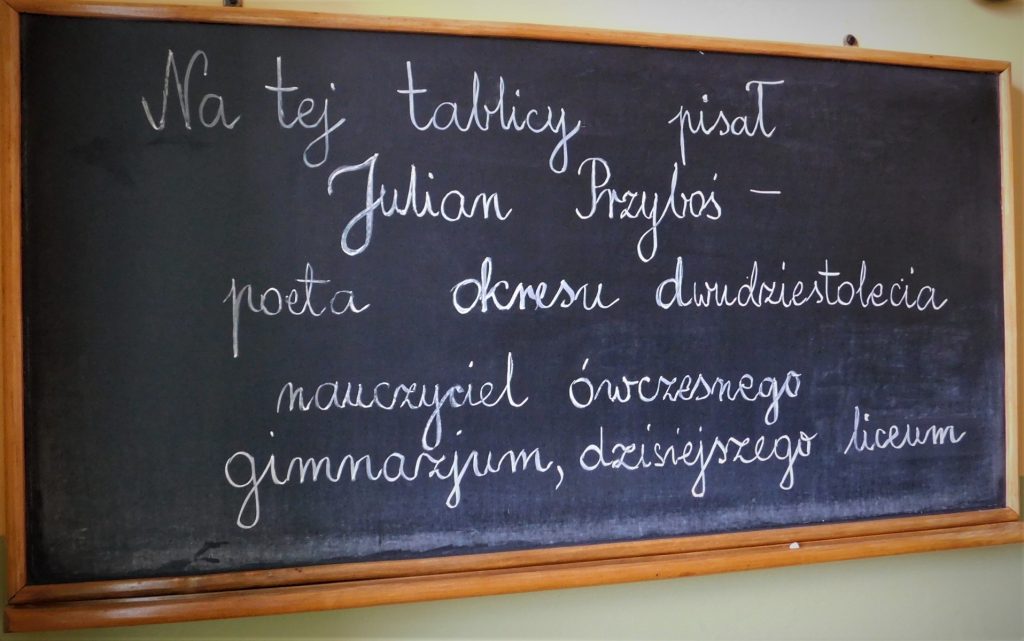 Na tej tablicy pisał
Julian Przyboś –
poeta okresu dwudziestolecia
nauczyciel ówczesnego
gimnazjum, dzisiejszego liceum